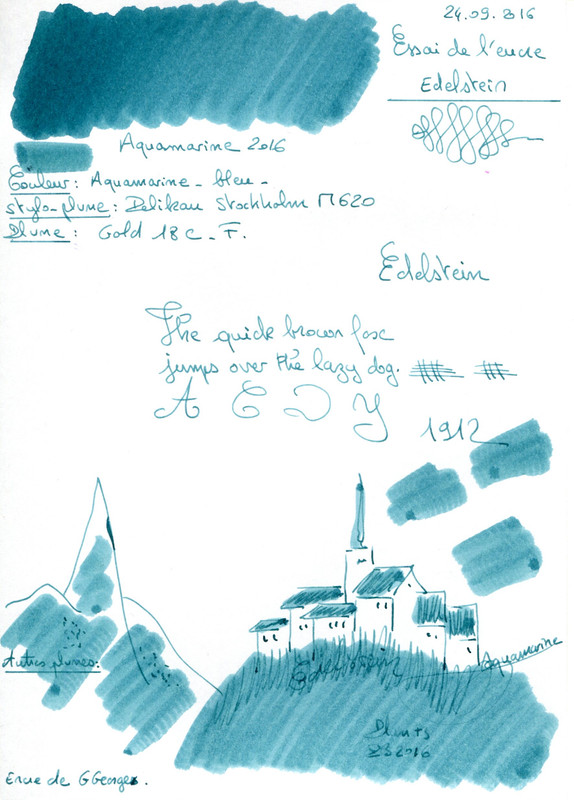 24.09.2016
Essai de l'encre
Edelstein
Aquamarine 2016
Couleur: Aquamarine - bleu -
stylo-plume: Pelikan Stockholm M620
Plume: Gold 18 c - F.
Edelstein
The quick brown fox
jumps over the lazy dog.
A E D Y
1912
Autres plumes:
Edelstein
Aquamarine
2016
Encre de GGeorges.